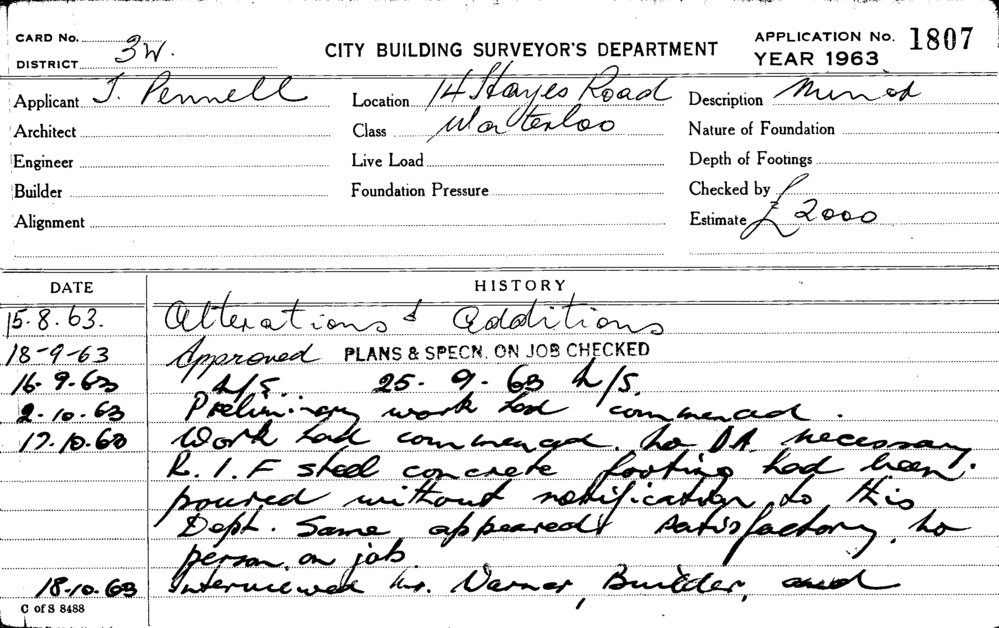 CARD No. 3W. CITY BUILDING SURVEYOR'S DEPARTMENT APPLICATION No. 1807
DISTRICT YEAR 1963
Applicant J. Pennell Location 14 Hayes Road Description Minor
Architect Class Waterloo Nature of Foundation
Engineer Live Load Depth of Footings
Builder Foundation Pressure Checked by
Alignment Estimate £2000
DATE HISTORY
15.8.63. Alterations & additions
18-9-63 Approved PLANS & SPECN. ON JOB CHECKED
16.9.63 25.9.63
2.10.63 Preliminary work had commenced.
17.10.63 Work had commenced. No D.A. necessary
R.I.F steel concrete footing had been
poured without notification to this
Dept. Same appeared satisfactory. No
person on job
18.10.63 Interviewed Mr. Builder, and
C of S 8488